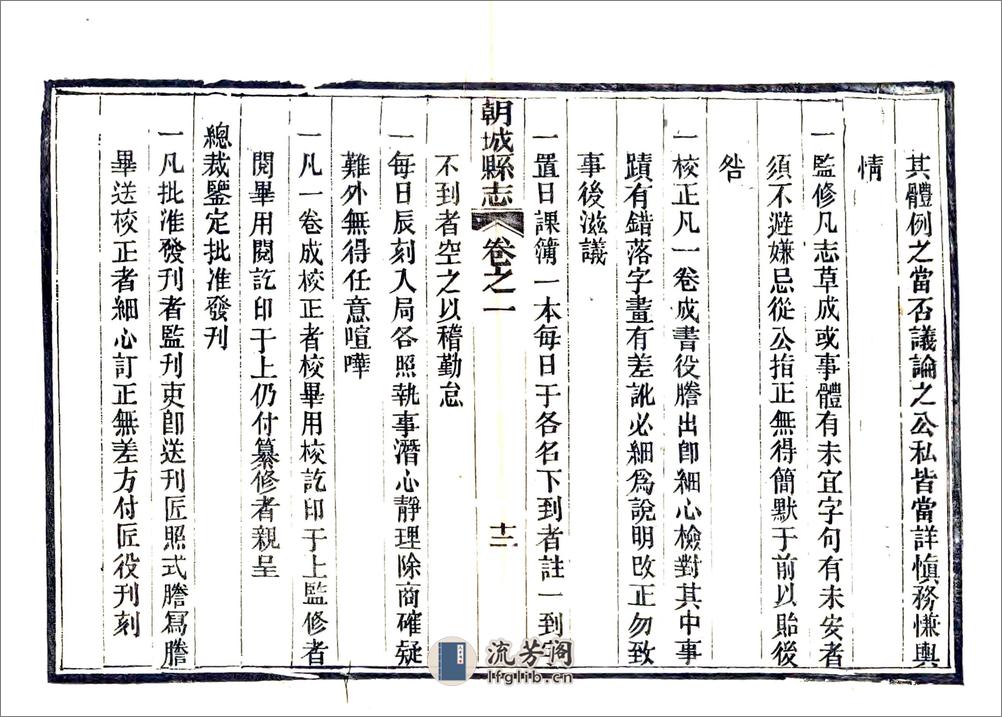 其體例之當否議論之公私皆當詳慎務愜輿
情
一監修凡志草成或事體有未宜字句有未安者
須不避嫌忌從公指正無得簡默于前以貽後
咎
一校正凡一卷成書役謄出卽細心檢對其中事
蹟有錯落字畫有差訛必細爲說明改正勿致
事後滋議
一置日課簿一本每日于各名下到者註一到字
朝城縣志 卷之一 十二
不到者空之以稽勤怠
一每日辰刻入局各照執事潛心靜理除商確疑
難外無得任意喧嘩
一凡一卷成校正者校畢用校訖印于上監修者
閱畢用閱訖印于上仍付纂修者親呈
總裁鑒定批准發刊
一凡批准發刊者監刊吏卽送刊匠照式謄寫謄
畢送校正者細心訂正無差方付匠役刊刻
流芳阁
lfglib.cn